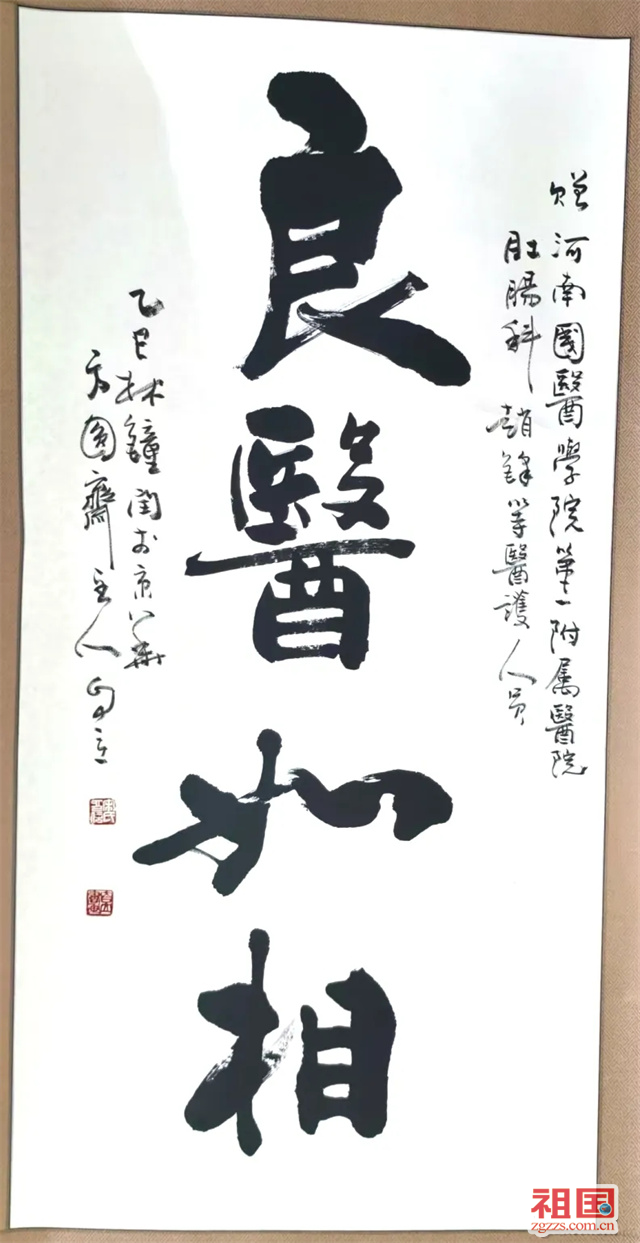 赠河南國醫學院第一附属醫院
肛腸科趙鋒等醫護人员
良醫如相
乙巳林鐘閏於京華
方圓齋主人
祖国
zgzzs.com.cn